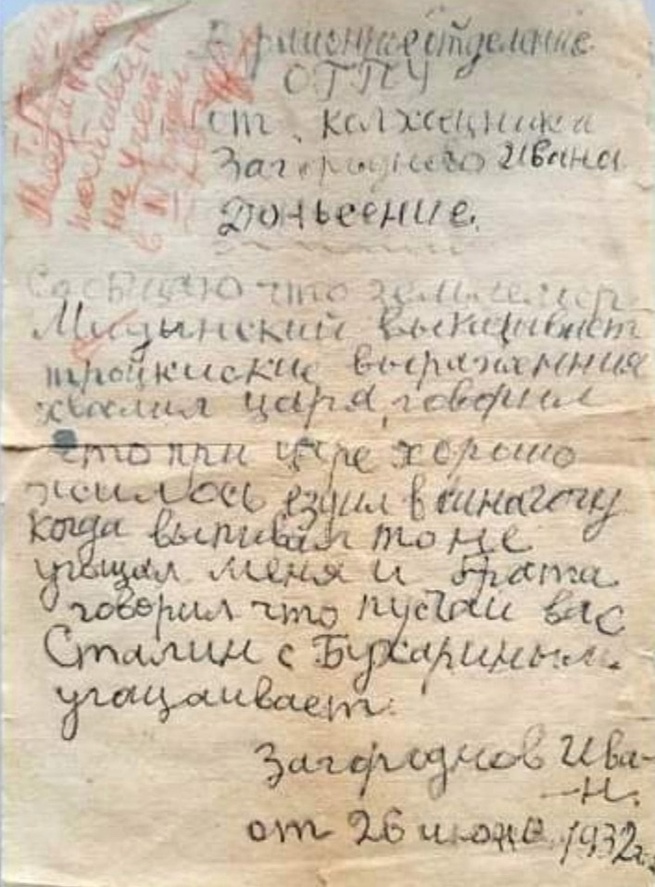 В районное отделение
ОГПУ
от колхоцника
Загороднего Ивана
Доньесение.
на учет
Сообщаю что землемер
Мидынский выказывает
троцкиские выражения
хвалил царя, говорил
што при царе хорошо
жилось ездил в синагогу
когда выпивал то не
угощал меня и брата
говорил что пускай вас
Сталин с Бухариным
угащаивает.
Загороднов Ива-
-н.
от 26 июня 1932 г.